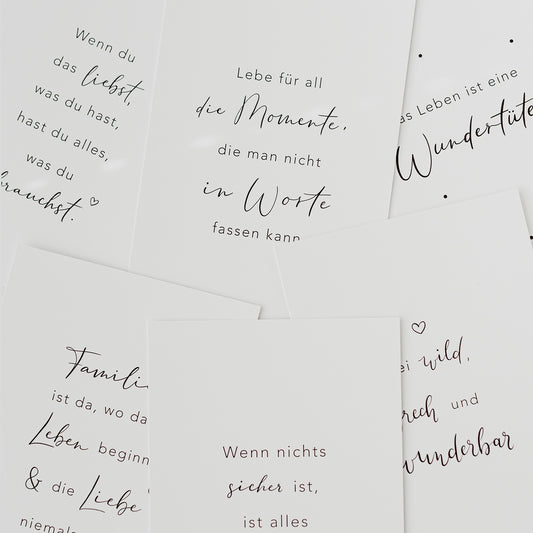 Wenn du
das liebst,
was du hast,
hast du alles,
was du
brauchst.
Lebe für all
die Momente,
die man nicht
in Worte
fassen kann
as Leben ist eine
Wundertüte
Famili
ist da, wo da
Leben beginn
& die Liebe
niemals
Wenn nichts
sicher ist,
ist alles
ei wild,
rech und
wunderbar